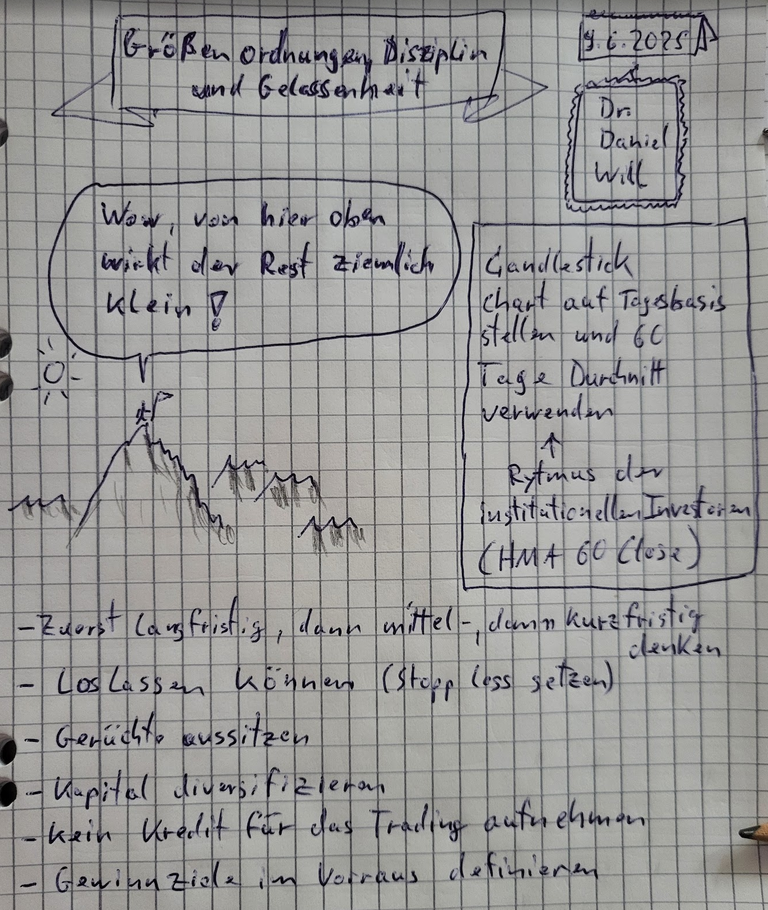 Größenordnungen, Disziplin
und Gelassenheit
9.6.2025
Dr.
Daniel
Will
Wow, von hier oben
wirkt der Rest ziemlich
klein!
Candlestick
chart auf Tagesbasis
stellen und 60
Tage Durchnitt
verwenden
↑
Rytmus der
institutionellen Investoren
(HMA 60 Close)
- Zuerst langfristig, dann mittel-, dann kurzfristig
denken
- Loslassen können (Stopp loss setzen)
- Gerüchte aussitzen
- Kapital diversifizieren
- Kein Kredit für das Trading aufnehmen
- Gewinnziele im Vorraus definieren